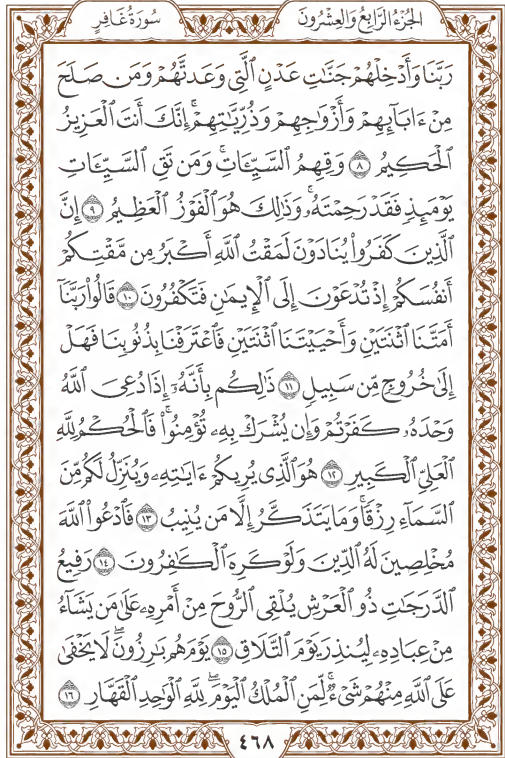 الجُزْءُ الرَّابِعُ وَالعِشْرُونَ
سُورَةُ غَافِرٍ
رَبَّنَا وَأَدْخِلْهُمْ جَنَّٰتِ عَدْنٍ ٱلَّتِى وَعَدتَّهُمْ وَمَن صَلَحَ
مِنْ ءَابَآئِهِمْ وَأَزْوَٰجِهِمْ وَذُرِّيَّٰتِهِمْ ۚ إِنَّكَ أَنتَ ٱلْعَزِيزُ
ٱلْحَكِيمُ ٨ وَقِهِمُ ٱلسَّيِّـَٔاتِ ۚ وَمَن تَقِ ٱلسَّيِّـَٔاتِ
يَوْمَئِذٍ فَقَدْ رَحِمْتَهُۥ ۚ وَذَٰلِكَ هُوَ ٱلْفَوْزُ ٱلْعَظِيمُ ٩ إِنَّ
ٱلَّذِينَ كَفَرُوا۟ يُنَادَوْنَ لَمَقْتُ ٱللَّهِ أَكْبَرُ مِن مَّقْتِكُمْ
أَنفُسَكُمْ إِذْ تُدْعَوْنَ إِلَى ٱلْإِيمَٰنِ فَتَكْفُرُونَ ١٠ قَالُوا۟ رَبَّنَآ
أَمَتَّنَا ٱثْنَتَيْنِ وَأَحْيَيْتَنَا ٱثْنَتَيْنِ فَٱعْتَرَفْنَا بِذُنُوبِنَا فَهَلْ
إِلَىٰ خُرُوجٍ مِّن سَبِيلٍ ١١ ذَٰلِكُم بِأَنَّهُۥٓ إِذَا دُعِىَ ٱللَّهُ
وَحْدَهُۥ كَفَرْتُمْ ۖ وَإِن يُشْرَكْ بِهِۦ تُؤْمِنُوا۟ ۚ فَٱلْحُكْمُ لِلَّهِ
ٱلْعَلِىِّ ٱلْكَبِيرِ ١٢ هُوَ ٱلَّذِى يُرِيكُمْ ءَايَٰتِهِۦ وَيُنَزِّلُ لَكُم مِّنَ
ٱلسَّمَآءِ رِزْقًا ۚ وَمَا يَتَذَكَّرُ إِلَّا مَن يُنِيبُ ١٣ فَٱدْعُوا۟ ٱللَّهَ
مُخْلِصِينَ لَهُ ٱلدِّينَ وَلَوْ كَرِهَ ٱلْكَٰفِرُونَ ١٤ رَفِيعُ
ٱلدَّرَجَٰتِ ذُو ٱلْعَرْشِ يُلْقِى ٱلرُّوحَ مِنْ أَمْرِهِۦ عَلَىٰ مَن يَشَآءُ
مِنْ عِبَادِهِۦ لِيُنذِرَ يَوْمَ ٱلتَّلَاقِ ١٥ يَوْمَ هُم بَٰرِزُونَ ۖ لَا يَخْفَىٰ
عَلَى ٱللَّهِ مِنْهُمْ شَىْءٌ ۚ لِّمَنِ ٱلْمُلْكُ ٱلْيَوْمَ ۖ لِلَّهِ ٱلْوَٰحِدِ ٱلْقَهَّارِ ١٦
٤٦٨